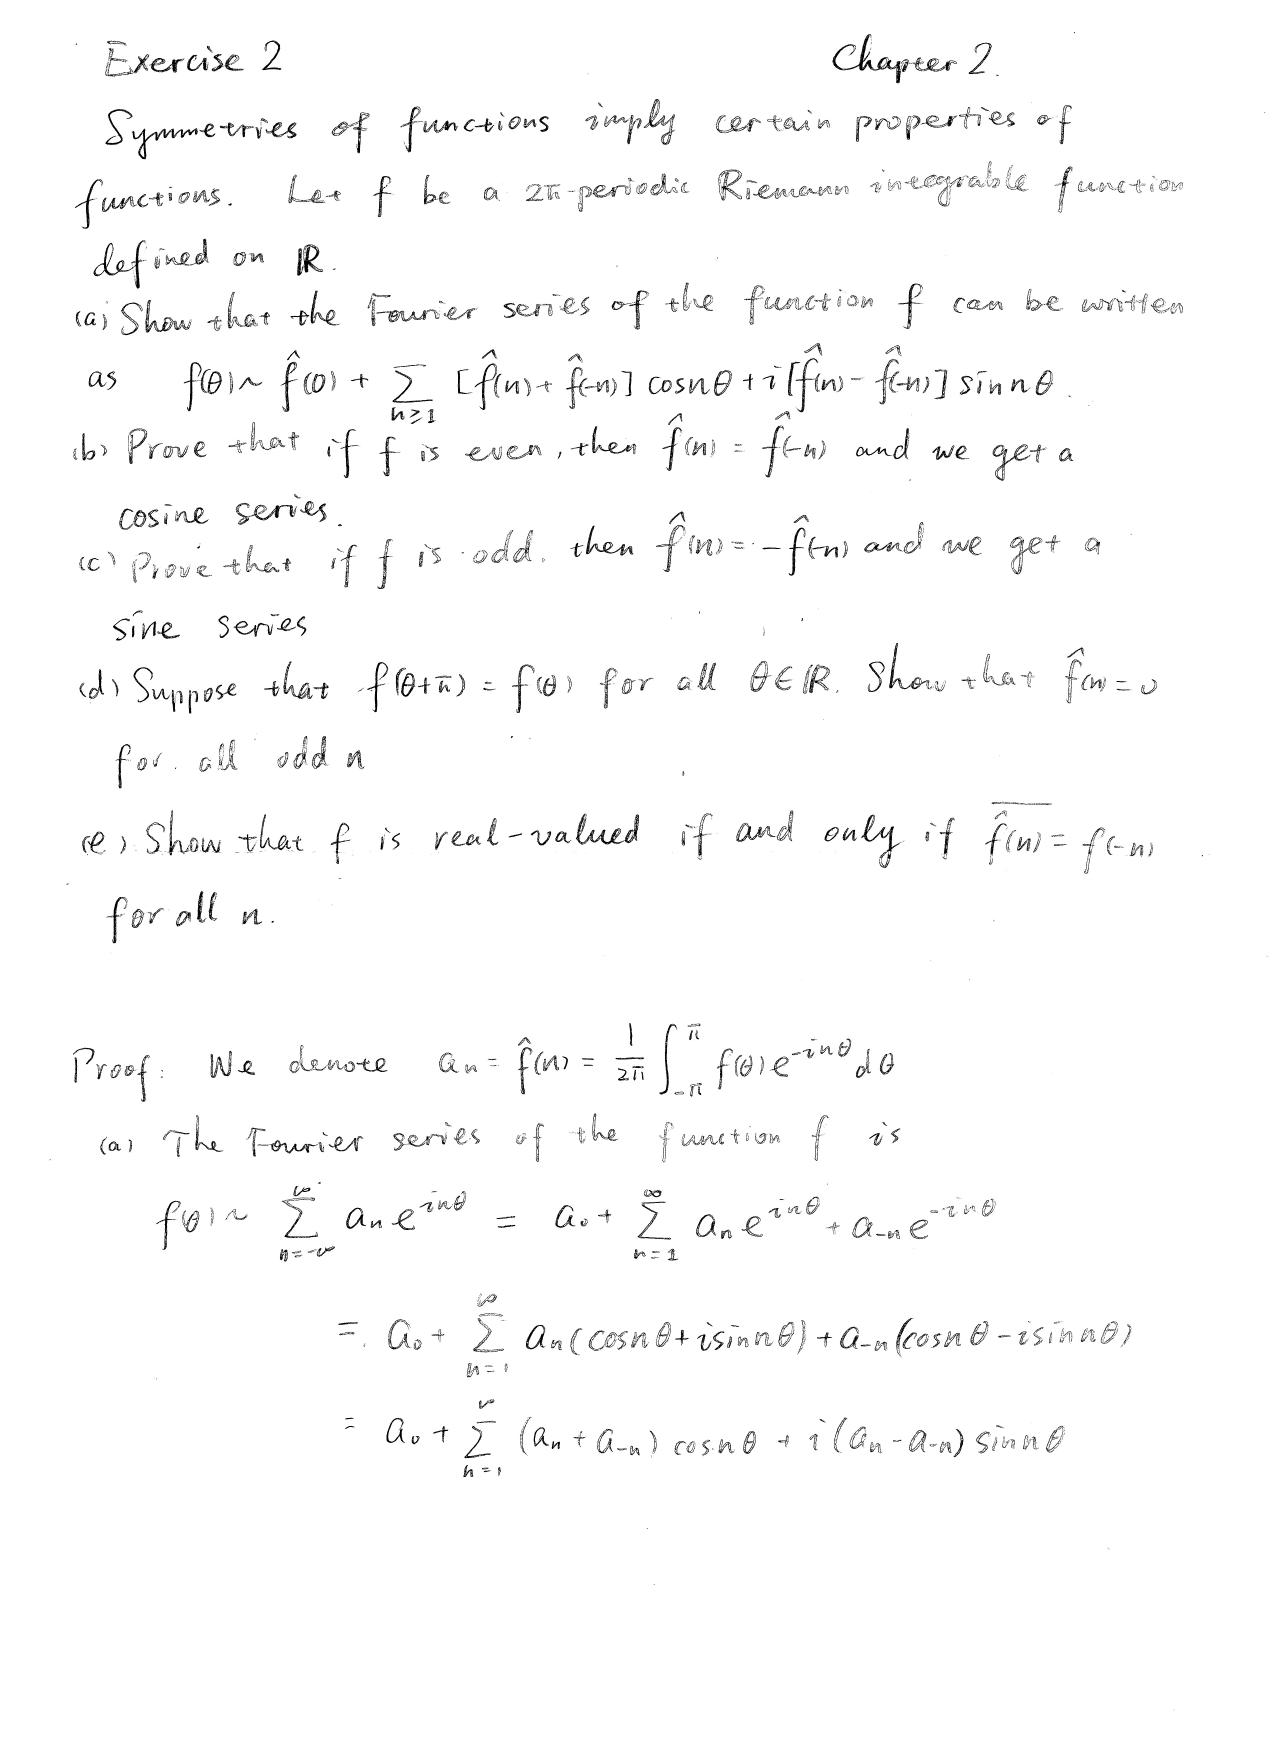 Exercise 2 Chapter 2.
Symmetries of functions imply certain properties of
functions. Let f be a 2π-periodic Riemann integrable function
defined on ℝ.
(a) Show that the Fourier series of the function f can be written
as f(θ) ~ f̂(0) + ∑_{n≥1} [f̂(n) + f̂(-n)] cos nθ + i [f̂(n) - f̂(-n)] sin nθ.
(b) Prove that if f is even, then f̂(n) = f̂(-n) and we get a
cosine series.
(c) Prove that if f is odd, then f̂(n) = -f̂(-n) and we get a
sine series
(d) Suppose that f(θ+π) = f(θ) for all θ∈ℝ. Show that f̂(n) = 0
for all odd n
(e) Show that f is real-valued if and only if \overline{f̂(n)} = f(-n)
for all n.
Proof: We denote a_n = f̂(n) = \frac{1}{2π} ∫_{-π}^{π} f(θ) e^{-inθ} dθ
(a) The Fourier series of the function f is
f(θ) ~ ∑_{n=-∞}^{∞} a_n e^{inθ} = a_0 + ∑_{n=1}^{∞} a_n e^{inθ} + a_{-n} e^{-inθ}
= a_0 + ∑_{n=1}^{∞} a_n (cos nθ + i sin nθ) + a_{-n} (cos nθ - i sin nθ)
= a_0 + ∑_{n=1}^{∞} (a_n + a_{-n}) cos nθ + i (a_n - a_{-n}) sin nθ